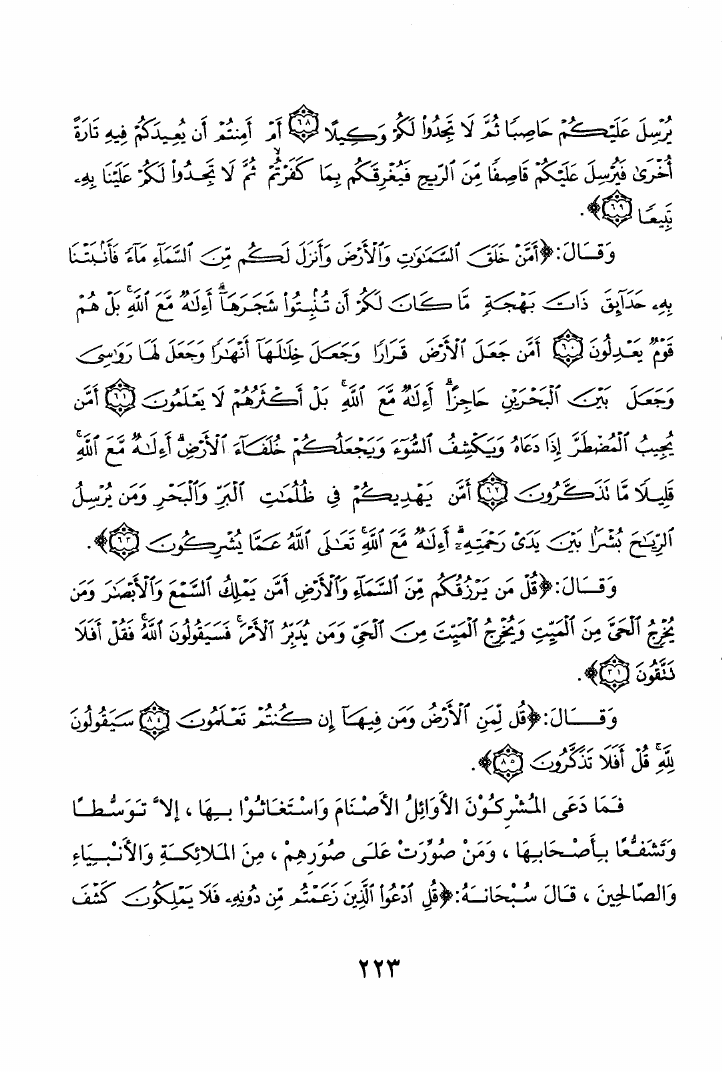 يُرْسِلَ عَلَيْكُمْ حَاصِبًا ثُمَّ لَا تَجِدُوا۟ لَكُمْ وَكِيلًا ۝٦٨ أَمْ أَمِنتُمْ أَن يُعِيدَكُمْ فِيهِ تَارَةً
أُخْرَىٰ فَيُرْسِلَ عَلَيْكُمْ قَاصِفًا مِّنَ ٱلرِّيحِ فَيُغْرِقَكُم بِمَا كَفَرْتُمْ ۙ ثُمَّ لَا تَجِدُوا۟ لَكُمْ عَلَيْنَا بِهِۦ
تَبِيعًا ۝٦٩﴾.
وَقَالَ: ﴿أَمَّنْ خَلَقَ ٱلسَّمَٰوَٰتِ وَٱلْأَرْضَ وَأَنزَلَ لَكُم مِّنَ ٱلسَّمَآءِ مَآءً فَأَنۢبَتْنَا
بِهِۦ حَدَآئِقَ ذَاتَ بَهْجَةٍ مَّا كَانَ لَكُمْ أَن تُنۢبِتُوا۟ شَجَرَهَآ ۗ أَءِلَٰهٌ مَّعَ ٱللَّهِ ۚ بَلْ هُمْ
قَوْمٌ يَعْدِلُونَ ۝٦٠ أَمَّن جَعَلَ ٱلْأَرْضَ قَرَارًا وَجَعَلَ خِلَٰلَهَآ أَنْهَٰرًا وَجَعَلَ لَهَا رَوَٰسِىَ
وَجَعَلَ بَيْنَ ٱلْبَحْرَيْنِ حَاجِزًا ۗ أَءِلَٰهٌ مَّعَ ٱللَّهِ ۚ بَلْ أَكْثَرُهُمْ لَا يَعْلَمُونَ ۝٦١ أَمَّن
يُجِيبُ ٱلْمُضْطَرَّ إِذَا دَعَاهُ وَيَكْشِفُ ٱلسُّوٓءَ وَيَجْعَلُكُمْ خُلَفَآءَ ٱلْأَرْضِ ۗ أَءِلَٰهٌ مَّعَ ٱللَّهِ ۚ
قَلِيلًا مَّا تَذَكَّرُونَ ۝٦٢ أَمَّن يَهْدِيكُمْ فِى ظُلُمَٰتِ ٱلْبَرِّ وَٱلْبَحْرِ وَمَن يُرْسِلُ
ٱلرِّيَٰحَ بُشْرًۢا بَيْنَ يَدَىْ رَحْمَتِهِۦٓ ۗ أَءِلَٰهٌ مَّعَ ٱللَّهِ ۚ تَعَٰلَى ٱللَّهُ عَمَّا يُشْرِكُونَ ۝٦٣﴾.
وَقَالَ: ﴿قُلْ مَن يَرْزُقُكُم مِّنَ ٱلسَّمَآءِ وَٱلْأَرْضِ أَمَّن يَمْلِكُ ٱلسَّمْعَ وَٱلْأَبْصَٰرَ وَمَن
يُخْرِجُ ٱلْحَىَّ مِنَ ٱلْمَيِّتِ وَيُخْرِجُ ٱلْمَيِّتَ مِنَ ٱلْحَىِّ وَمَن يُدَبِّرُ ٱلْأَمْرَ ۚ فَسَيَقُولُونَ ٱللَّهُ ۚ فَقُلْ أَفَلَا
تَتَّقُونَ ۝٣١﴾.
وَقَالَ: ﴿قُل لِّمَنِ ٱلْأَرْضُ وَمَن فِيهَآ إِن كُنتُمْ تَعْلَمُونَ ۝٨٤ سَيَقُولُونَ
لِلَّهِ ۚ قُلْ أَفَلَا تَذَكَّرُونَ ۝٨٥﴾.
فَمَا دَعَى المُشْرِكُوْنَ الأَوَائِلُ الأَصْنَامَ وَاسْتَغَاثُوْا بِهَا ، إِلاَّ تَوَسُّطًا
وَتَشَفُّعًا بِأَصْحَابِهَا ، وَمَنْ صُوِّرَتْ عَلَى صُوَرِهِمْ ، مِنَ المَلائِكَةِ وَالأَنْبِيَاءِ
وَالصَّالِحِينَ ، قَالَ سُبْحَانَهُ: ﴿قُلِ ٱدْعُوا۟ ٱلَّذِينَ زَعَمْتُم مِّن دُونِهِۦ فَلَا يَمْلِكُونَ كَشْفَ
٢٢٣